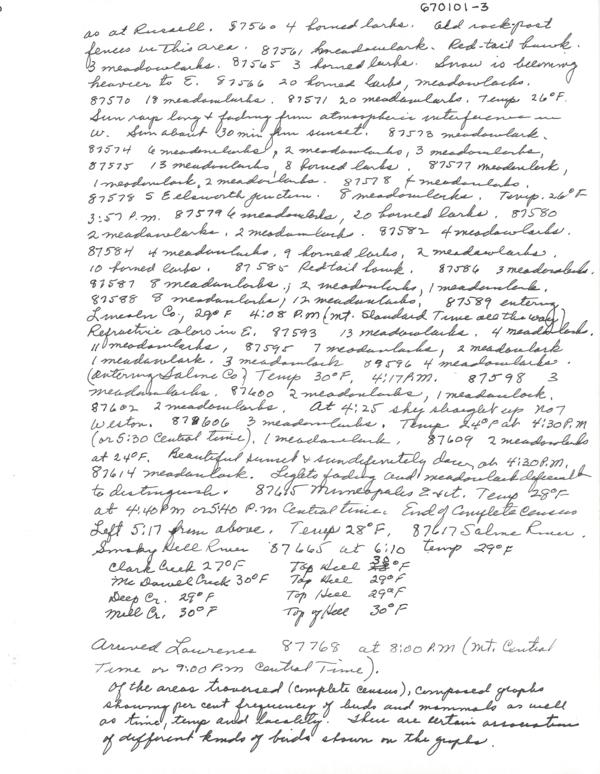 670101-3
as at Russell. 87560 4 horned larks. Old rock-post
fences in this area. 87561 meadowlark. Red-tail hawk.
3 meadowlarks. 87565 3 horned larks. Snow is becoming
heavier to E. 87566 20 horned larks, meadowlarks.
87570 18 meadowlarks. 87571 20 meadowlarks. Temp 26°F.
Sun rays long & fading from atmospheric interference in
W. Sun about 30 min from sunset. 87573 meadowlark.
87574 6 meadowlarks, 2 meadowlarks, 3 meadowlarks,
87575 13 meadowlarks, 8 horned larks. 87577 meadowlark,
1 meadowlark, 2 meadowlarks. 87578 4 meadowlarks.
87578 S Ellsworth junction. 8 meadowlarks. Temp. 26°F
3:57 P.M. 87579 6 meadowlarks, 20 horned larks. 87580
2 meadowlarks, 2 meadowlark. 87582 4 meadowlarks.
87584 4 meadowlarks, 9 horned larks, 2 meadowlarks.
10 horned larks. 87585 Redtail hawk. 87586 3 meadowlarks.
87587 8 meadowlarks; 2 meadowlarks, 1 meadowlark.
87588 8 meadowlarks, 12 meadowlarks, 87589 entering
Lincoln Co, 29°F 4:08 P.M (Mt. Standard Time all the way)
Refractive colors in E. 87593 13 meadowlarks. 4 meadowlarks.
11 meadowlarks, 87595 7 meadowlarks, 2 meadowlark
1 meadowlark. 3 meadowlark 89596 4 meadowlarks.
(entering Saline Co) Temp 30°F, 4:17 P.M. 87598 3
meadowlarks. 87600 2 meadowlarks, 1 meadowlark.
87602 2 meadowlarks. At 4:25 sky straight up not
Weston. 878606 3 meadowlarks. Temp 24°F at 4:30 P.M
(or 5:30 Central time). 1 meadowlark, 87609 2 meadowlarks
at 24°F. Beautiful sunset & sun definitely down at 4:30 P.M.
87614 meadowlark. Lights fading and meadowlark difficult
to distinguish. 87615 Minneapolis Exit. Temp 28°F
at 4:40 PM or 5:40 P.M Central time. End of Complete Census
Left 5:17 from above. Temp 28°F, 87617 Saline River.
Smoky Hill River 87665 at 6:10 temp 29°F
Clark Creek 27°F Top Hill 30°F
Mc Dowel Creek 30°F Top Hill 29°F
Deep Cr. 29°F Top Hill 29°F
Mill Cr. 30°F Top of Hill 30°F
Arrived Lawrence 87768 at 8:00 P.M (Mt. Central
Time or 9:00 P.M Central Time).
Of the areas traversed (complete census), composed graphs
showing per cent frequency of birds and mammals as well
as time, temp and locality. There are certain association
of different kinds of birds shown on the graphs.